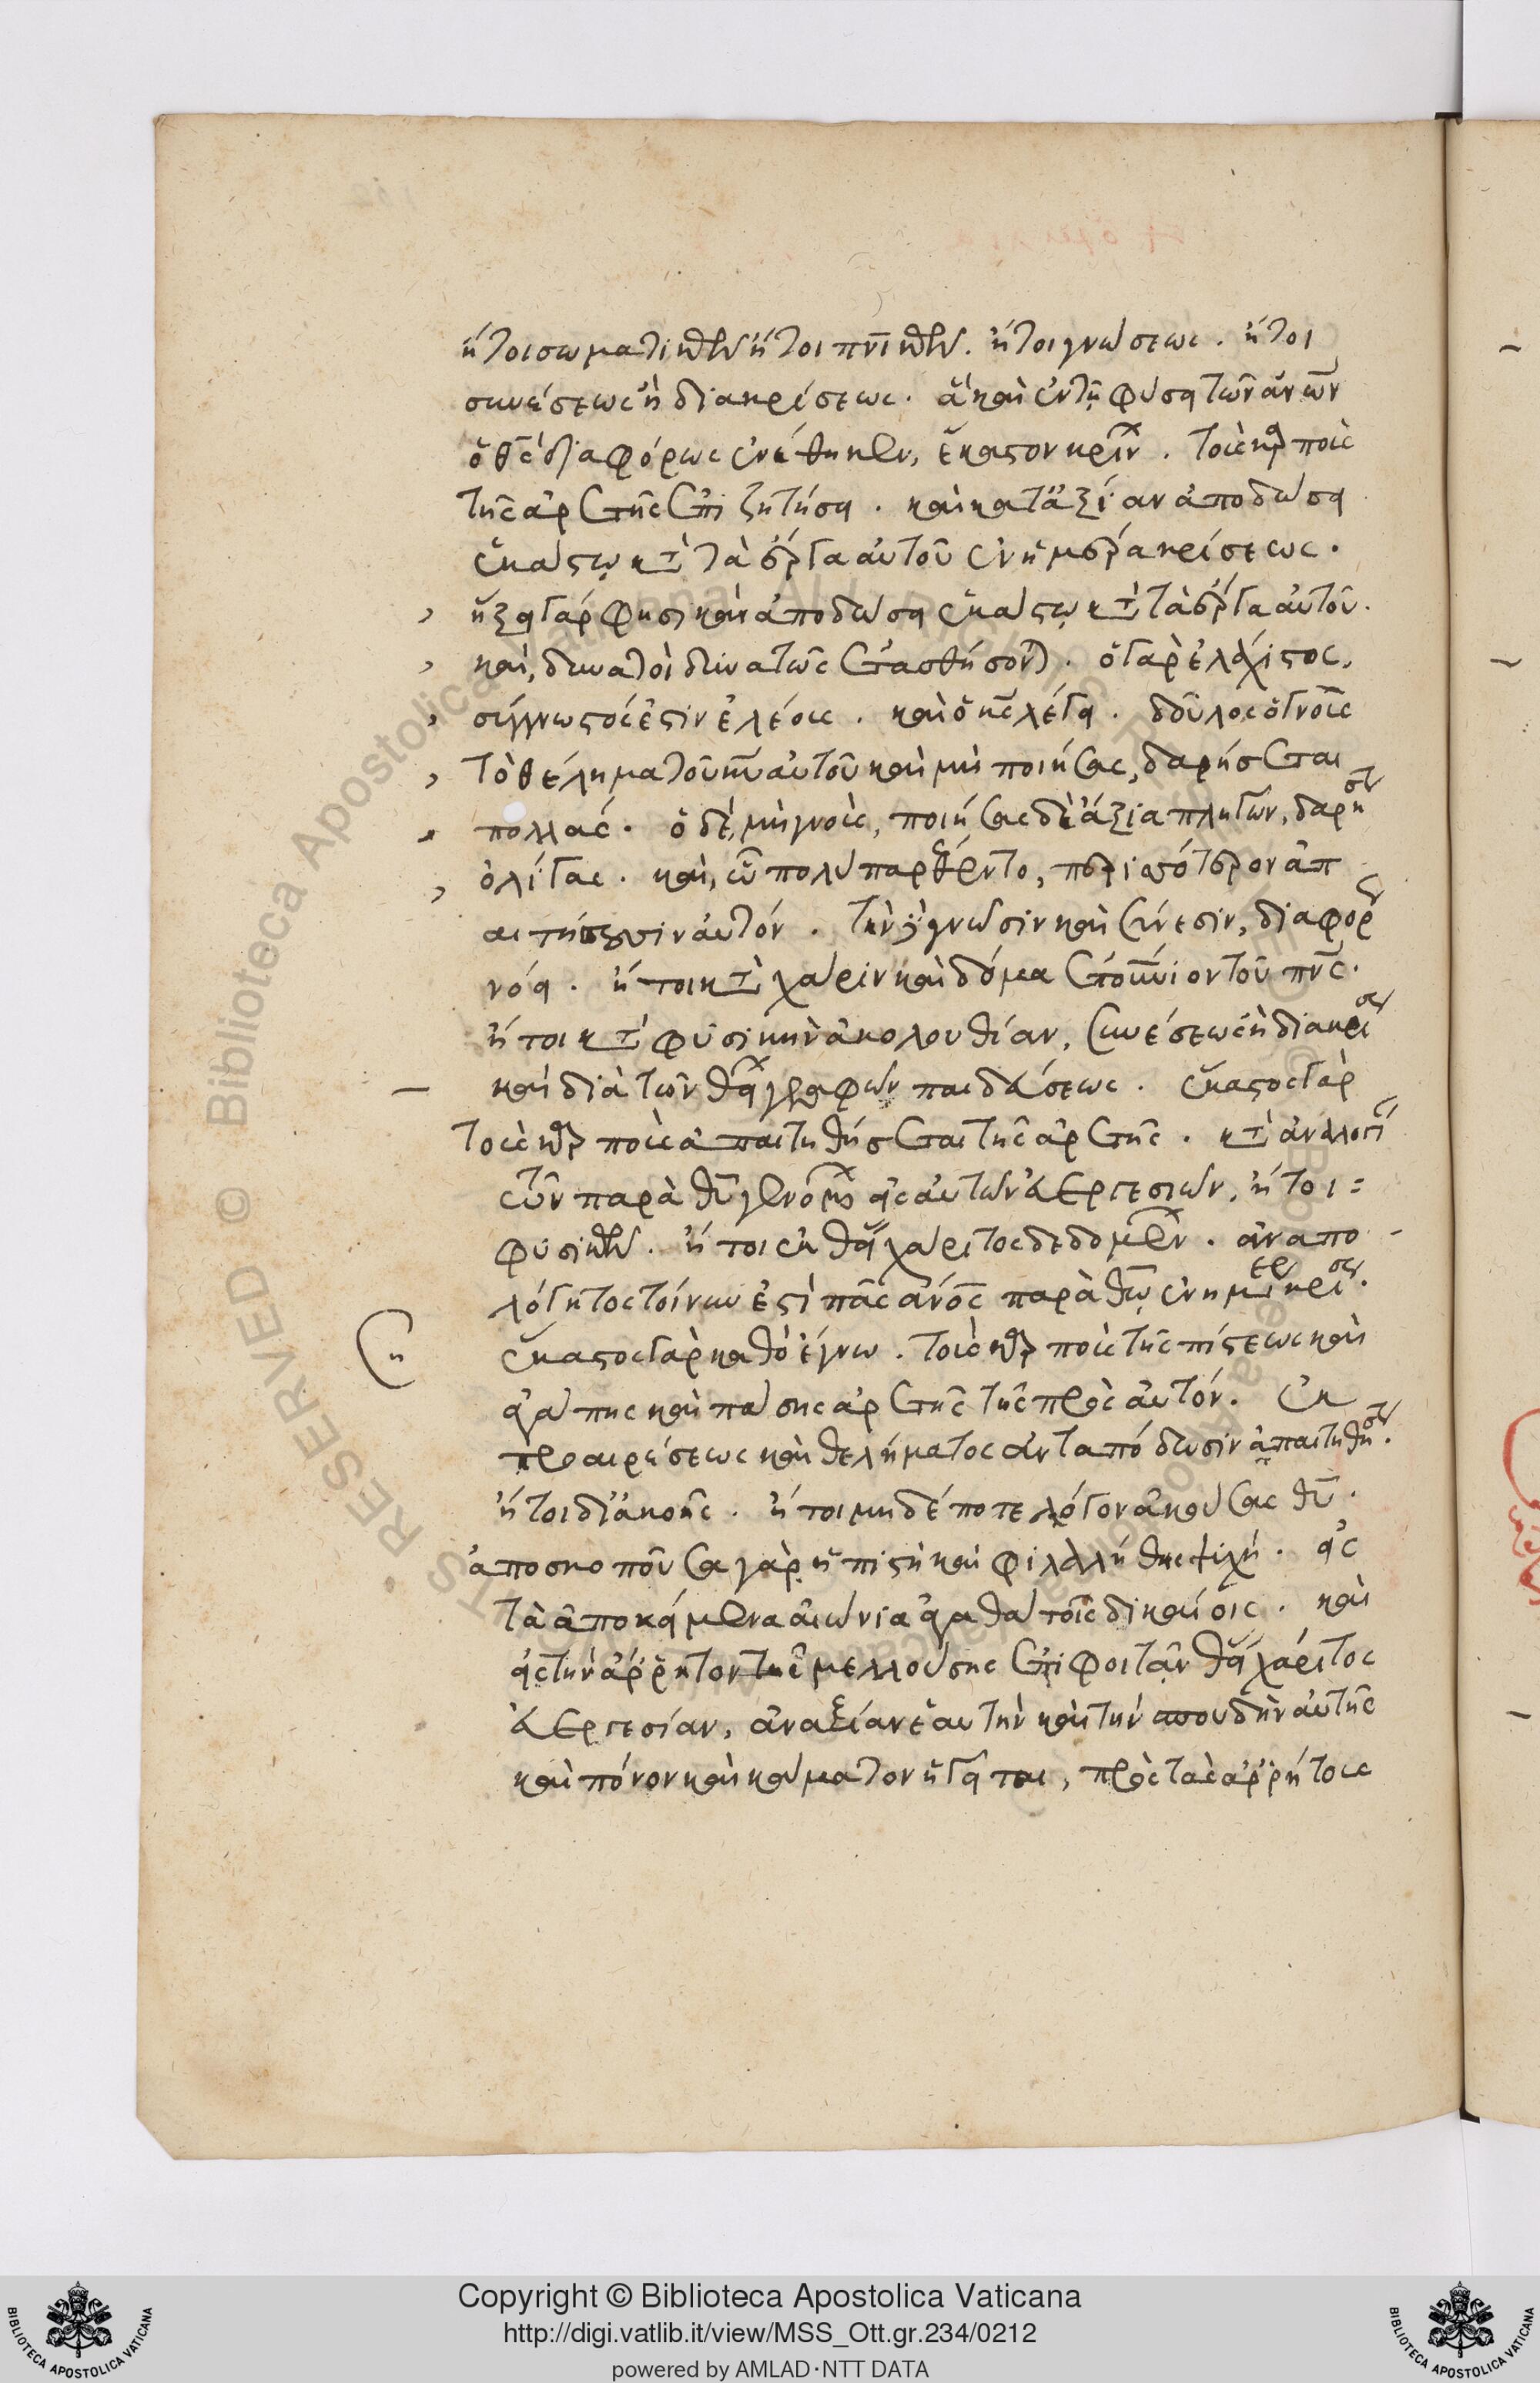 ἤτοι σωματικῶν ἤτοι πνικῶν. ἤτοι γνώσεως. ἤτοι
συνέσεως ἢ διακρίσεως. ἃ καὶ ἐν τῇ φύσει τῶν ανων
ὁ θς διαφόρως ἐνέθηκεν, ἕκαστον κρίνων. τοὺς καρποὺς
τῆς ἀρετῆς ἐπιζητήσει. καὶ κατ' ἀξίαν ἀποδώσει
ἑκάστῳ κατὰ τὰ ἔργα αὐτοῦ ἐν ἡμέρα κρίσεως.
ἥξει γάρ φησι καὶ ἀποδώσει ἑκάστῳ κατὰ τὰ ἔργα αὐτοῦ.
καὶ, δυνατοὶ δυνατῶς ἐτασθήσονται. ὁ γὰρ ἐλάχιστος,
σύγγνωστός ἐστιν ἐλέους. καὶ ὁ κς λέγει. ὁ δοῦλος ὁ γνοὺς
τὸ θέλημα τοῦ κυ αὐτοῦ καὶ μὴ ποιήσας, δαρήσεται
πολλάς. ὁ δὲ, μὴ γνοὺς, ποιήσας δὲ ἄξια πληγῶν, δαρήσεται
ὀλίγας. καὶ, ᾧ πολὺ παρέθεντο, περισσότερον ἀπ
αιτήσουσιν αὐτόν. τὴν δὲ γνῶσιν καὶ σύνεσιν, διαφόρως
νόει. ἤτοι κατὰ χάριν καὶ δόμα ἐπουράνιον τοῦ πνς.
ἤτοι κατὰ φύσικὴν ἀκολουθίαν, συνέσεως ἢ διακρίσεως
καὶ διὰ τῶν θείων γραφῶν παιδεύσεως. ἕκαστος γὰρ
τοὺς καρποὺς ἀπαιτηθήσεται τῆς ἀρετῆς. κατὰ ἀναλογίαν
τῶν παρὰ θυ γενομένων εἰς αὐτὸν εὐεργεσιῶν, ἤτοι
φυσικῶν. ἤτοι ἐκ θείας χάριτος δεδομένων. ἀναπο
λόγητος τοίνυν ἐστὶ πᾶς ανος παρὰ θω ἐν ἡμέρα κρίσεως.
ἕκαστος γὰρ καθὸ ἔγνω. τοὺς καρποὺς τῆς πίστεως καὶ
ἀγάπης καὶ πάσης ἀρετῆς τῆς πρὸς αὐτόν. ἐκ
προαιρέσεως καὶ θελήματος ἀνταπόδωσιν ἀπαιτηθήσεται.
ἤτοι δι' ἀκοῆς. ἤτοι μηδέποτε λόγον ἀκούσας θυ.
ἀποσκοποῦσα γὰρ ἡ πιστὴ καὶ φιλαλήθης ψυχή. εἰς
τὰ ἀποκείμενα αἰώνια ἀγαθὰ τοῖς δικαίοις. καὶ
εἰς τὴν ἄρρητον τῆς μελλούσης ἐπιφοιτᾶν θείας χάριτος
εὐεργεσίαν, ἀναξίαν ἑαυτὴν καὶ τὴν σπουδὴν αὐτῆς
καὶ πόνον καὶ κάματον ἡγεῖται, πρὸς τὰς ἀρρήτους
Copyright © Biblioteca Apostolica Vaticana
http://digi.vatlib.it/view/MSS_Ott.gr.234/0212
powered by AMLAD·NTT DATA